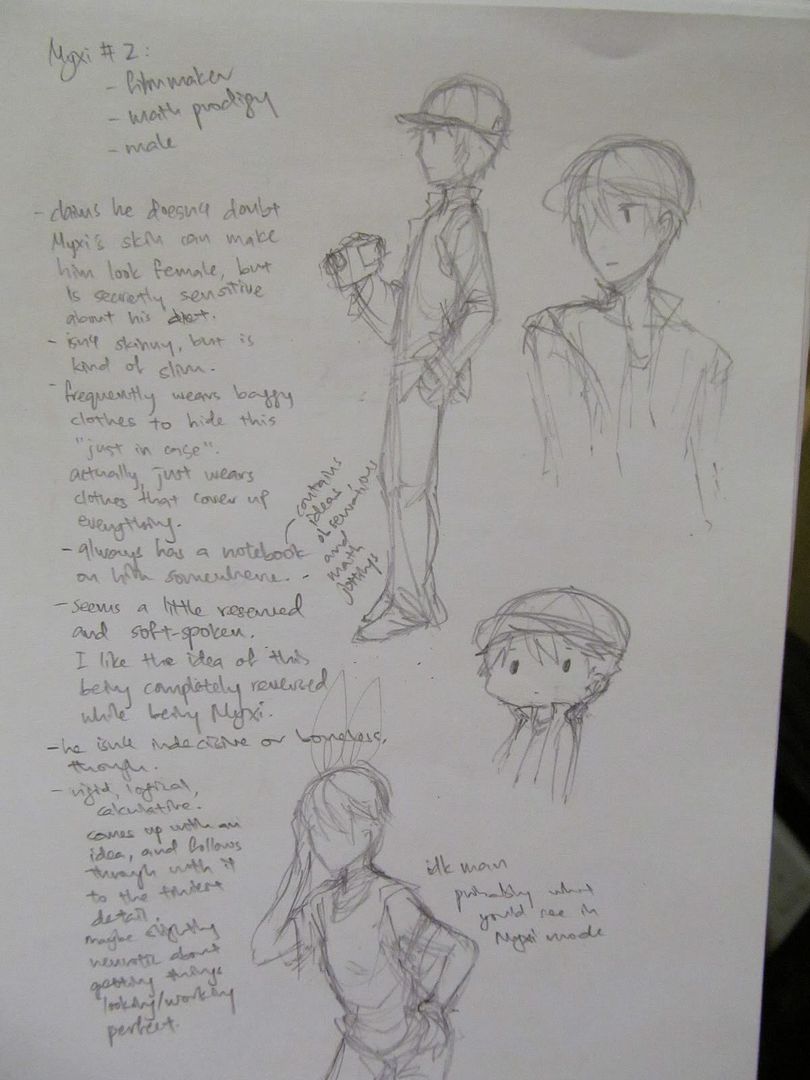 Myxi # 2:
- filmmaker
- math prodigy
- male
- claims he doesn't doubt
Myxi's skin can make
him look female, but
is secretly sensitive
about his
- isn't skinny, but is
kind of slim.
- frequently wears baggy
clothes to hide this
"just in case".
actually, just wears
clothes that cover up
everything.
- always has a notebook
on him somewhere. -
contains
ideas,
observations
and
math
jottings
- seems a little reserved
and soft-spoken.
I like the idea of this
being completely reversed
while being Myxi.
- he isn't indecisive or boneless,
though.
- rigid, logical,
calculative.
comes up with an
idea, and follows
through with it
to the tiniest
detail.
maybe slightly
neurotic about
getting things
looking/working
perfect.
idk man
probably what
you'd see in
Myxi mode